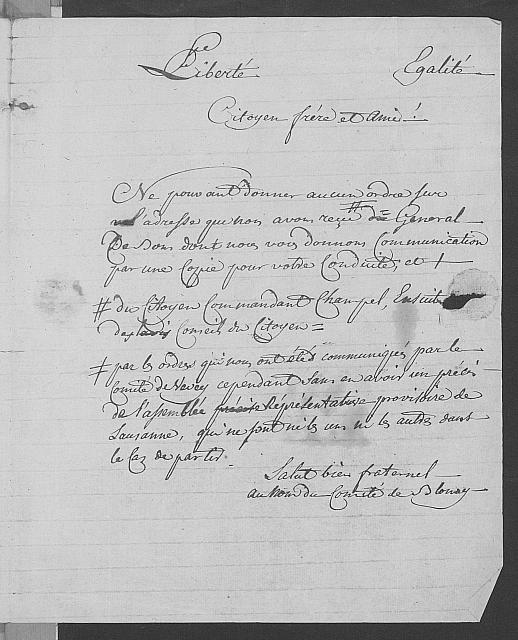 Liberté Egalité
Citoyen frére et Ami!
Ne pouvant donner aucun ordre sur
l'adresse que nous avons reçu # du General
De Bons dont nous vous donnons Communication
par une Copie pour votre Conduite, et ‡
# du Citoyen Commandant Chanpel, Ensuite
des lavis Conseil du Citoyen =
‡ par les ordres qui nous ont étés communiqués par le
Comité de Vevey cependant sans en avoir un précis
de l'assemblée précise Représentative provisoire de
Lausanne, qui ne sont ni les uns ni les autres dans
le Cas de partir.
Salut bien fraternel
au Nom du Comité de Blonay